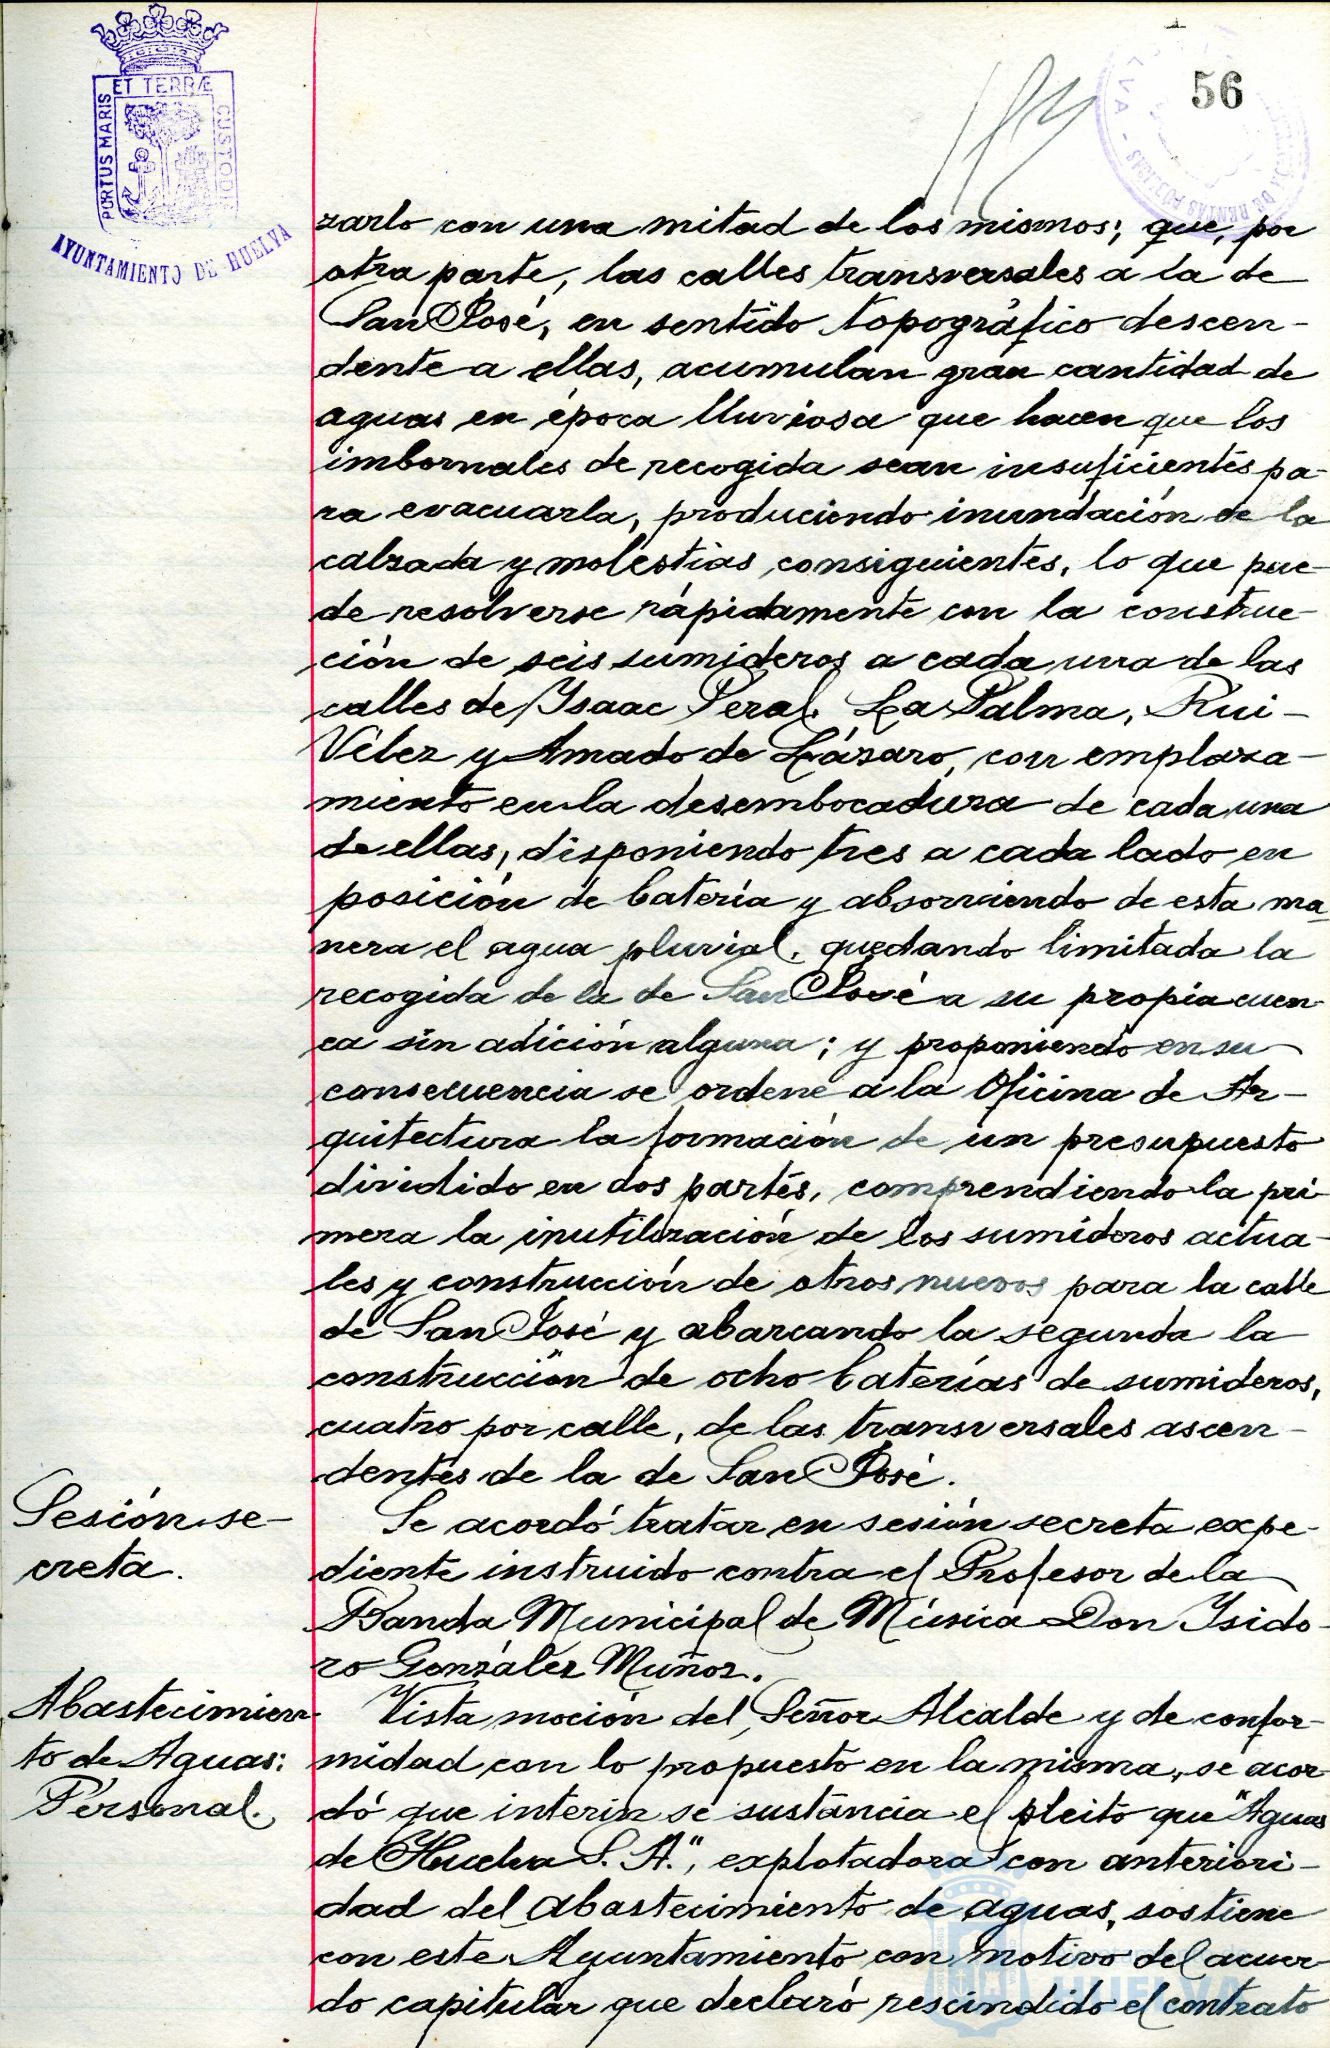 ET TERRÆ
PORTUS MARIS
CUSTODI
AYUNTAMIENTO DE HUELVA
56
zarlo con una mitad de los mismos; que, por
otra parte, las calles transversales a la de
San José, en sentido topográfico descen-
dente a ellas, acumulan gran cantidad de
aguas en época lluviosa que hacen que los
imbornales de recogida sean insuficientes pa-
ra evacuarla, produciendo inundación de la
calzada y molestias consiguientes, lo que pue-
de resolverse rápidamente con la construc-
ción de seis sumideros a cada una de las
calles de Isaac Peral, La Palma, Rui-
Vélez y Amado de Lázaro, con emplaza-
miento en la desembocadura de cada una
de ellas, disponiendo tres a cada lado en
posición de batería y absorviendo de esta ma-
nera el agua pluvial, quedando limitada la
recogida de la de San José a su propia cuen-
ca sin adición alguna; y proponiendo en su
consecuencia se ordene a la Oficina de Ar-
quitectura la formación de un presupuesto
dividido en dos partes, comprendiendo la pri-
mera la inutilización de los sumideros actua-
les y construcción de otros nuevos para la calle
de San José y abarcando la segunda la
construcción de ocho baterías de sumideros,
cuatro por calle, de las transversales ascen-
dentes de la de San José.
Sesión se-
creta.
Se acordó tratar en sesión secreta expe-
diente instruido contra el Profesor de la
Banda Municipal de Música Don Isido-
ro González Muñoz.
Abastecimien-
to de Aguas:
Personal.
Vista moción del Señor Alcalde y de confor-
midad con lo propuesto en la misma, se acor-
dó que interin se sustancia el pleito que "Aguas
de Huelva S. A.", explotadora con anteriori-
dad del abastecimiento de aguas, sostiene
con este Ayuntamiento con motivo del acuer-
do capitular que declaró rescindido el contrato
HUELVA